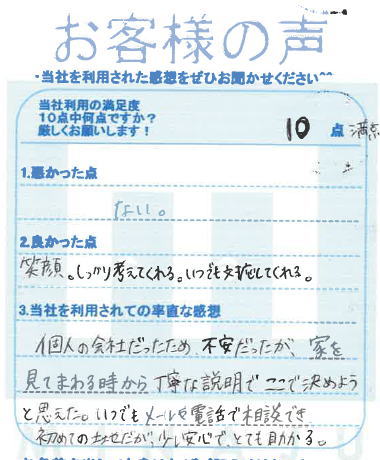 お客様の声
・当社を利用された感想をぜひお聞かせください^^
当社利用の満足度
10点中何点ですか?
厳しくお願いします!
10 点 満点
1.悪かった点
ない。
2.良かった点
笑顔。しっかり考えてくれる。いつでも対応してくれる。
3.当社を利用されての率直な感想
個人の会社だったため 不安だったが、家を
見てまわる時から丁寧な説明で ここで決めよう
と思えた。いつでもメールや電話で相談でき
初めての土地だが、少し安心で、とても助かる。